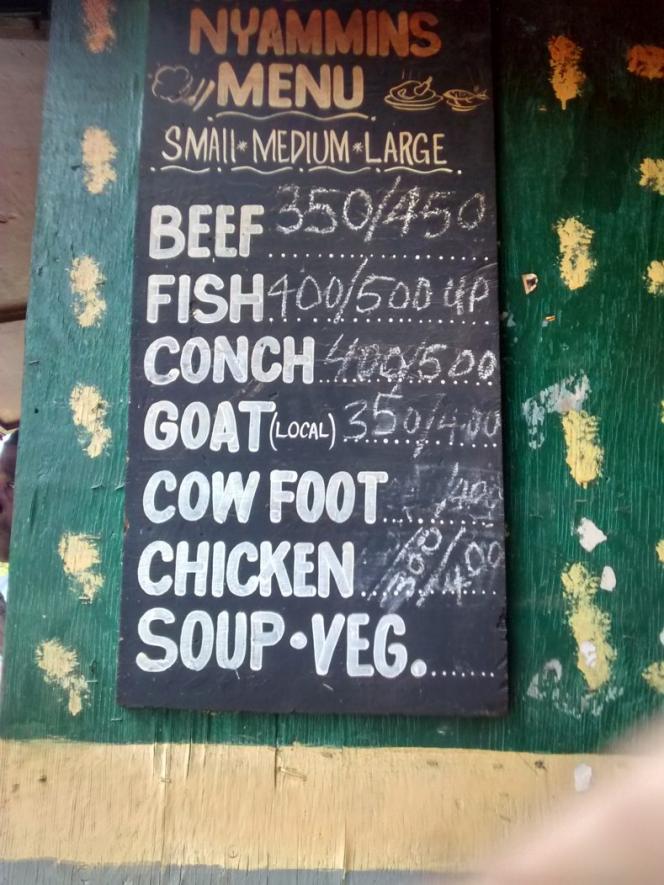 NYAMMINS
MENU
SMAll*MEDIUM*LARGE
BEEF 350/450
FISH 400/500 UP
CONCH 400/500
GOAT (LOCAL) 350/400
COW FOOT /400
CHICKEN 300/400
SOUP•VEG.